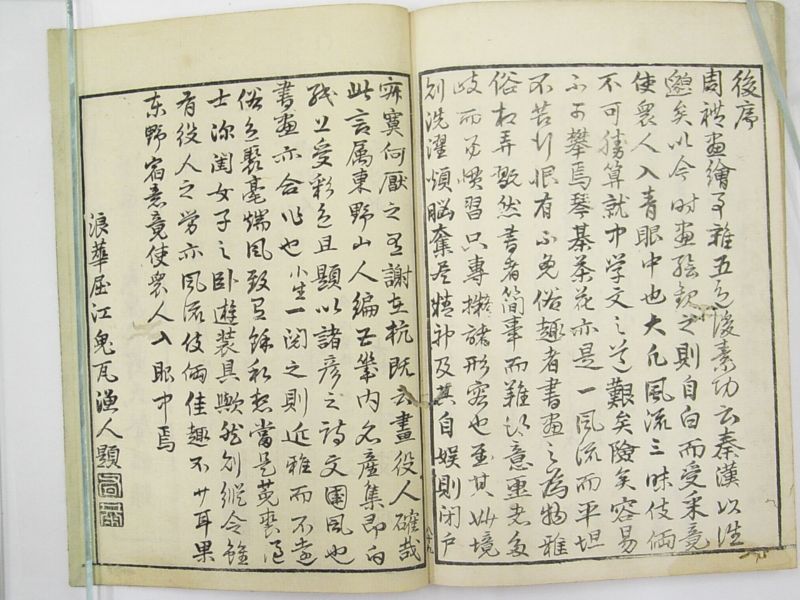 後序
周禮畫繪事雜五色後素功云秦漢以洋
邈矣以今時畫絵訳之則自白而受采竟
使衆人入青眼中也大凡風流三昧伎倆
不可勝算就中学文之道艱矣險矣容易
不可攀焉琴棊茶花亦是一風流而平坦
不苦行眼有不免俗趣者書画之為物雅
俗相弄歟然書者簡事而難得意画者多
岐而習慣只專擬諸形容也至其妙境
則洗濯煩腦奪居精神及其自娯則闭户
寂寞何厭之有謝在杭既云畫役人確哉
此言属東野山人編五畿内名産集昂的
我且受彩色且題以諸彦之詩文國風也
書画亦合作也小生一閲之則近雅而不遠
俗色聚毫端風致有餘私想當是英裘道
士深閨女子之卧遊装具歟然則縦令雖
有役人之労亦風流伎倆佳趣不少耳果
東野宿意竟使衆人入眼中焉
浪華屋江鬼瓦漁人題